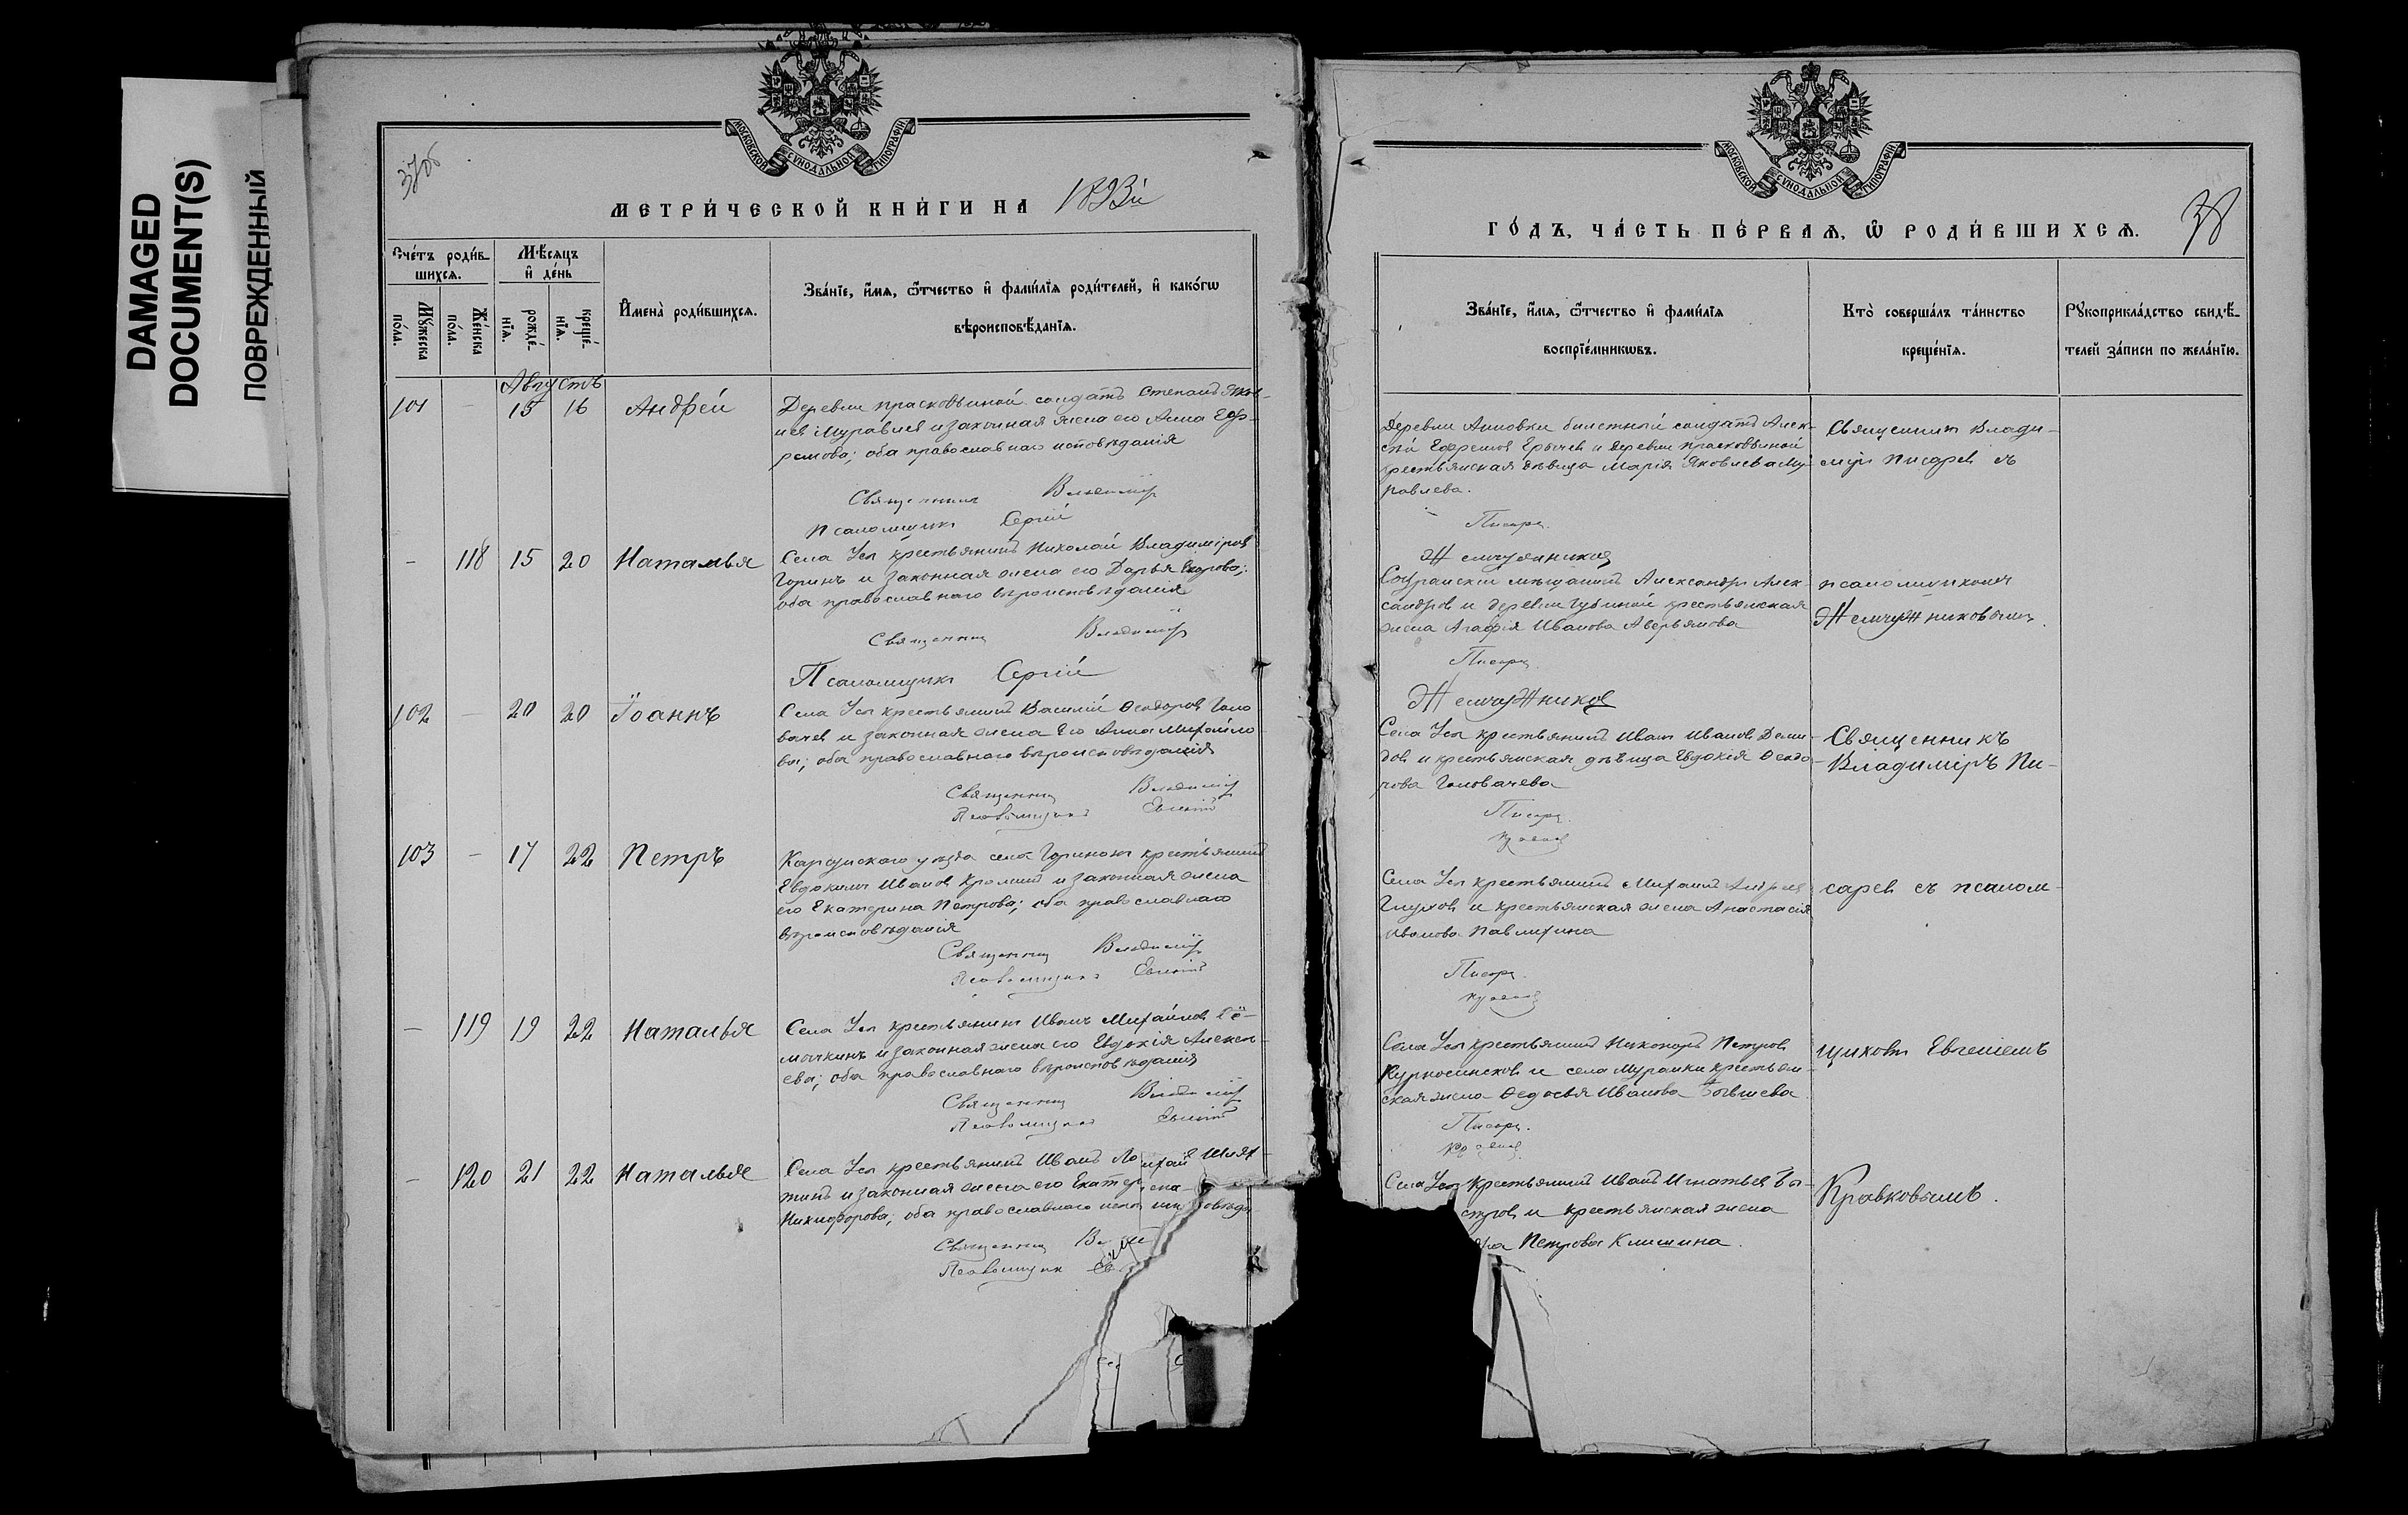 DAMAGED
DOCUMENT(S)
ПОВРЕЖДЕННЫЙ
МОСКОВСКОЙ СѴНОДАЛЬНОЙ ТИПОГРАФІИ
37об
МЕТРИ́ЧЕСКОЙ КНИ́ГИ НА 1893й
Сче́тъ роди́в-
шихсѧ.
Мꙋ́жеска
по́ла.
Же́нска
по́ла.
Мѣ́сѧцъ
и҆ де́нь
рожде́-
нїѧ.
креще́-
нїѧ.
И҆мена̀ роди́вшихсѧ.
Зва́нїе, и҆́мѧ, ѻ҆́тчество и҆ фами́лїѧ роди́телей, и҆ како́гѡ
вѣроисповѣ́данїѧ.
Августъ
101 — 15 16 Андрей
Деревни Прасковьиной солдатъ Степанъ Яков-
левъ Муравлевъ и законная жена его Анна Еф-
ремова; оба православнаго исповѣданія
Священникъ Владиміръ
Псаломщикъ Сергій
— 118 15 20 Наталья
Села Усы крестьянинъ Николай Владиміровъ
Горинъ и законная жена его Дарья Егорова;
оба православнаго вѣроисповѣданія
Священникъ Владиміръ
Псаломщикъ Сергій
102 — 20 20 Іоаннъ
Села Усы крестьянинъ Василій Ѳеодоровъ Голо
вачевъ и законная жена его Анна Михайло
ва; оба православнаго вѣроисповѣданія
Священникъ Владиміръ
Псаломщикъ Евгеній
103 — 17 22 Петръ
Карсунскаго уѣзда села Горинокъ крестьянинъ
Евдокимъ Ивановъ Кроминъ и законная жена
его Екатерина Петрова; оба православнаго
вѣроисповѣданія
Священникъ Владиміръ
Псаломщикъ Евгеній
— 119 19 22 Наталья
Села Усы крестьянинъ Иванъ Михайловъ
и законная жена его Евдокія Алексѣ-
ева; оба православнаго вѣроисповѣданія
Священникъ Владиміръ
Псаломщикъ Евгеній
— 120 21 22 Наталья
Села Усы крестьянинъ Иванъ
и законная жена его
Никифорова; оба православнаго
Священникъ
Псаломщикъ
МОСКОВСКОЙ СѴНОДАЛЬНОЙ ТИПОГРАФІИ
38
ГО́ДЪ, ЧА́СТЬ ПЕ́РВАѦ, Ѡ҆ РОДИ́ВШИХСѦ.
Зва́нїе, и҆́мѧ, ѻ҆́тчество и҆ фами́лїѧ
воспрїе́мникѡвъ.
Кто̀ соверша́лъ та́инство
креще́нїѧ.
Рꙋкоприкла́дство свидѣ́-
телей за́писи по жела́нїю.
Деревни Анновки билетный солдатъ Алек-
сѣй Ефремовъ Ерычевъ и деревни Прасковьиной
крестьянская дѣвица Марія Яковлева Му-
равлева.
Писаревъ
Жемчужниковъ
Сызранскій мѣщанинъ Александръ Алек-
сандровъ и деревни Губиной крестьянская
жена Агафія Иванова Аверьянова
Писаревъ
Жемчужниковъ
Села Усы крестьянинъ Иванъ Ивановъ Деми-
довъ и крестьянская дѣвица Евдокія Ѳеодо-
рова Головачева
Писаревъ
Кравковъ
Села Усы крестьянинъ Михаилъ Андреевъ
Глуховъ и крестьянская жена Анастасія
Иванова Павлихина
Писаревъ
Кравковъ
Села Усы крестьянинъ Никоноръ Петровъ
Курносенковъ и села Муранки крестьян-
ская жена Ѳедосья Иванова
Писаревъ
Кравковъ
Села Усы крестьянинъ Иванъ Игнатьевъ Бы-
стровъ и крестьянская жена
Петрова Клишина.
Священникъ Влади-
міръ Писаревъ съ
псаломщикомъ
Жемчужниковымъ.
Священникъ
Владиміръ Пи-
саревъ съ псалом-
щикомъ Евгеніемъ
Кравковымъ.